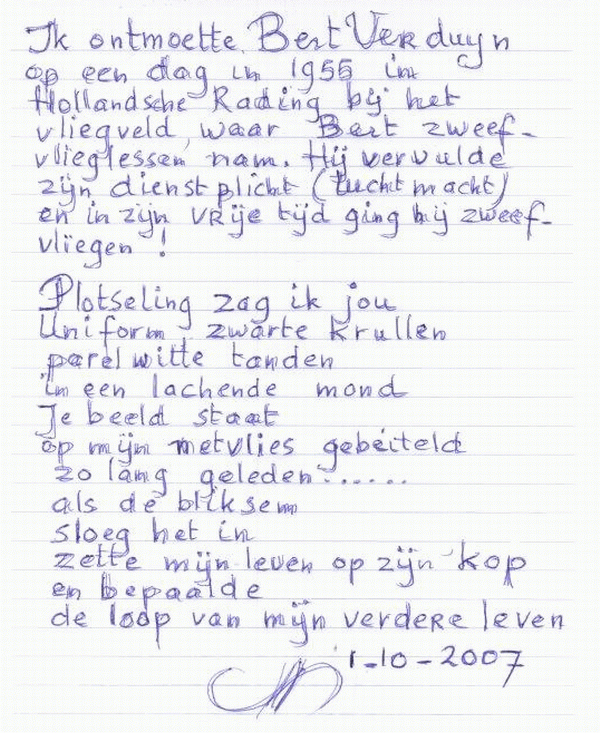 Ik ontmoette Bert Verduyn
op een dag in 1955 in
Hollandsche Rading bij het
vliegveld waar Bert zweef-
vlieglessen nam. Hij vervulde
zijn dienstplicht (luchtmacht)
en in zijn vrije tijd ging hij zweef-
vliegen !
Plotseling zag ik jou
Uniform - zwarte krullen
parelwitte tanden
in een lachende mond
Je beeld staat
op mijn netvlies gebeiteld
zo lang geleden......
als de bliksem
sloeg het in
zette mijn leven op zijn kop
en bepaalde
de loop van mijn verdere leven
1-10-2007